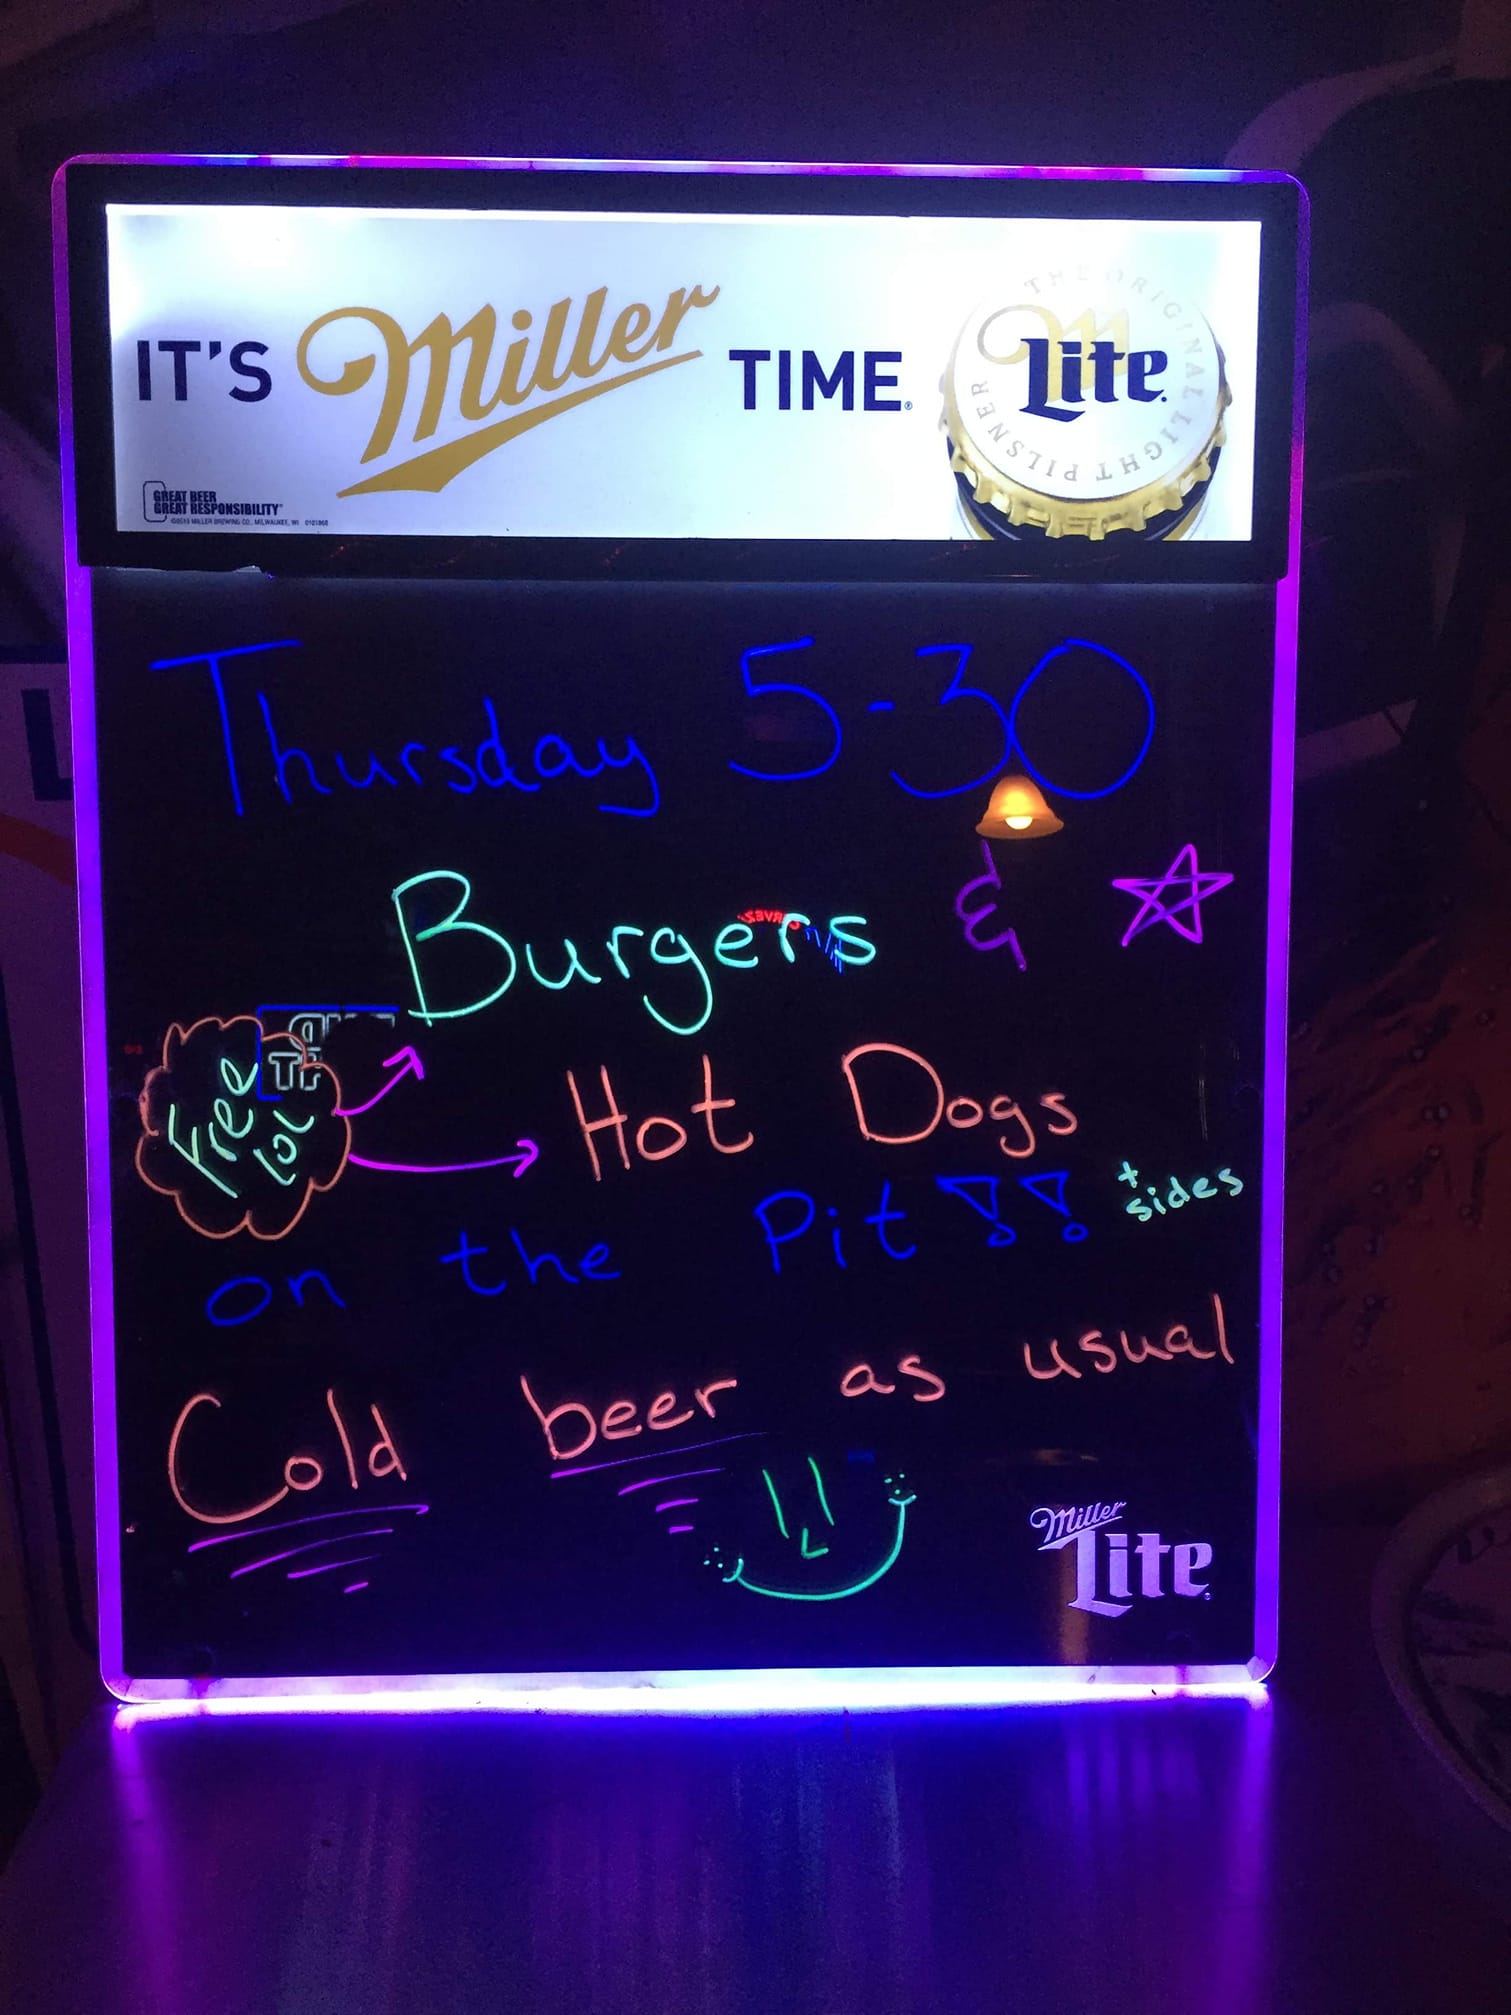 IT'S Miller TIME.
THE ORIGINAL LIGHT PILSNER
Lite
GREAT BEER
GREAT RESPONSIBILITY
©2019 MILLER BREWING CO., MILWAUKEE, WI
Thursday 5-30
Burgers &
Free
lol
Hot Dogs
+
sides
on the Pit!!
Cold beer as usual
Miller
Lite